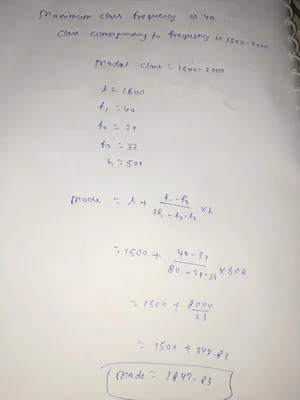 Maximum class frequency is 40
Class corresponding to frequency is 1500-2000
Modal class = 1500-2000
l = 1500
f₁ = 40
f₀ = 24
f₂ = 33
h = 500
Mode = l + (f₁ - f₀)/(2f₁ - f₀ - f₂) × h
= 1500 + (40 - 24)/(80 - 24 - 33) × 500
= 1500 + 8000/23
= 1500 + 347.83
Mode = 1847.83